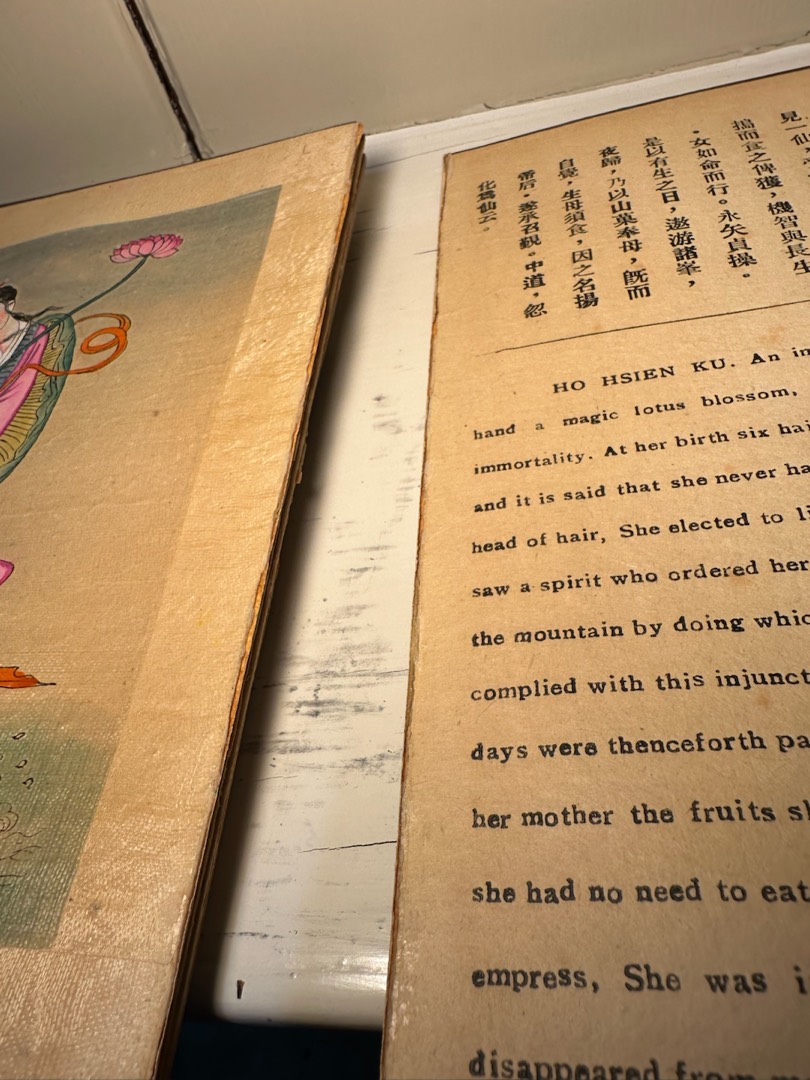 見一仙
搗而食之俾獲,機智與長生
。女如命而行。永矢貞操。
是以有生之日,遨游諸峯,
夜歸,乃以山菓奉母,既而
自覺,生毋須食,因之名揚
帝后。遂承召覲。中道,忽
化爲仙云。
HO HSIEN KU. An im
hand a magic lotus blossom,
immortality. At her birth six hai
and it is said that she never ha
head of hair, She elected to li
saw a spirit who ordered her
the mountain by doing whic
complied with this injunct
days were thenceforth pa
her mother the fruits sh
she had no need to eat
empress, She was i
disappeared from